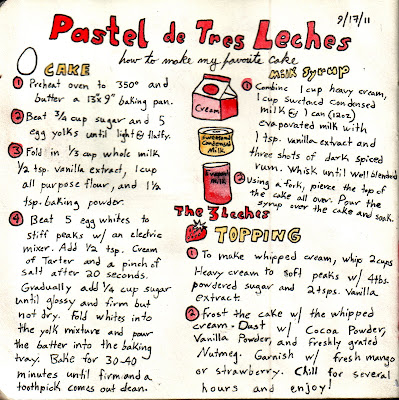 9/17/11
Pastel de Tres Leches
how to make my favorite Cake
CAKE
1 Preheat oven to 350° and
butter a 13"x9" baking pan.
2 Beat 3/4 cup sugar and 5
egg yolks until light & fluffy.
3 Fold in 1/3 cup whole milk
1/2 tsp. Vanilla extract, 1 cup
all purpose flour, and 1 1/2
tsp. baking powder.
4 Beat 5 egg whites to
stiff peaks w/ an electric
mixer. Add 1/2 tsp. Cream
of Tarter and a pinch of
salt after 20 seconds.
Gradually add 1/4 cup sugar
until glossy and firm but
not dry. Fold whites into
the yolk mixture and pour
the batter into the baking
tray. Bake for 30-40
minutes until firm and a
toothpick comes out clean.
Cream
Sweetened
Condensed
Milk
Evaporated
milk
The 3 Leches
Milk Syrup
1 Combine 1 cup heavy cream,
1 cup Swetaed condensed
milk & 1 can (12oz)
evaporated milk with
1 tsp. vanilla extract and
three shots of dark spiced
rum. Whisk until Well blended
2 Using a fork, pierce the top of
the cake all over. Pour the
syrup over the cake and soak.
TOPPING
1 To make whipped cream, whip 2 cups
Heavy cream to soft peaks w/ 4 tbs.
powdered sugar and 2 tsps. Vanilla
extract.
2 Frost the cake w/ the whipped
cream. Dust w/ Cocoa Powder,
Vanilla Powder, and freshly grated
Nutmeg. Garnish w/ fresh mango
or strawberry. Chill for several
hours and enjoy!